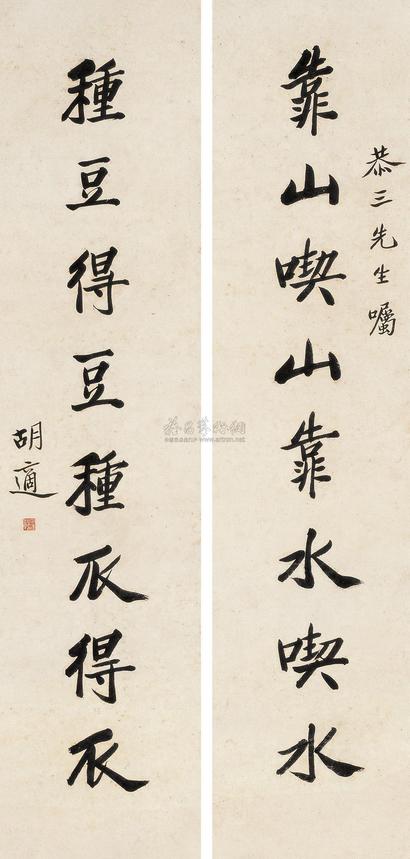 恭三先生囑
靠山喫山靠水喫水
種豆得豆種瓜得瓜
胡適
www.artron.net